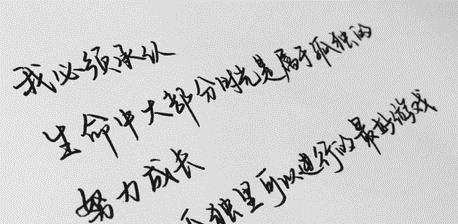 我必须承认
生命中大部分时光是属于孤独的
努力成长
孤独里可以进行的最好游戏